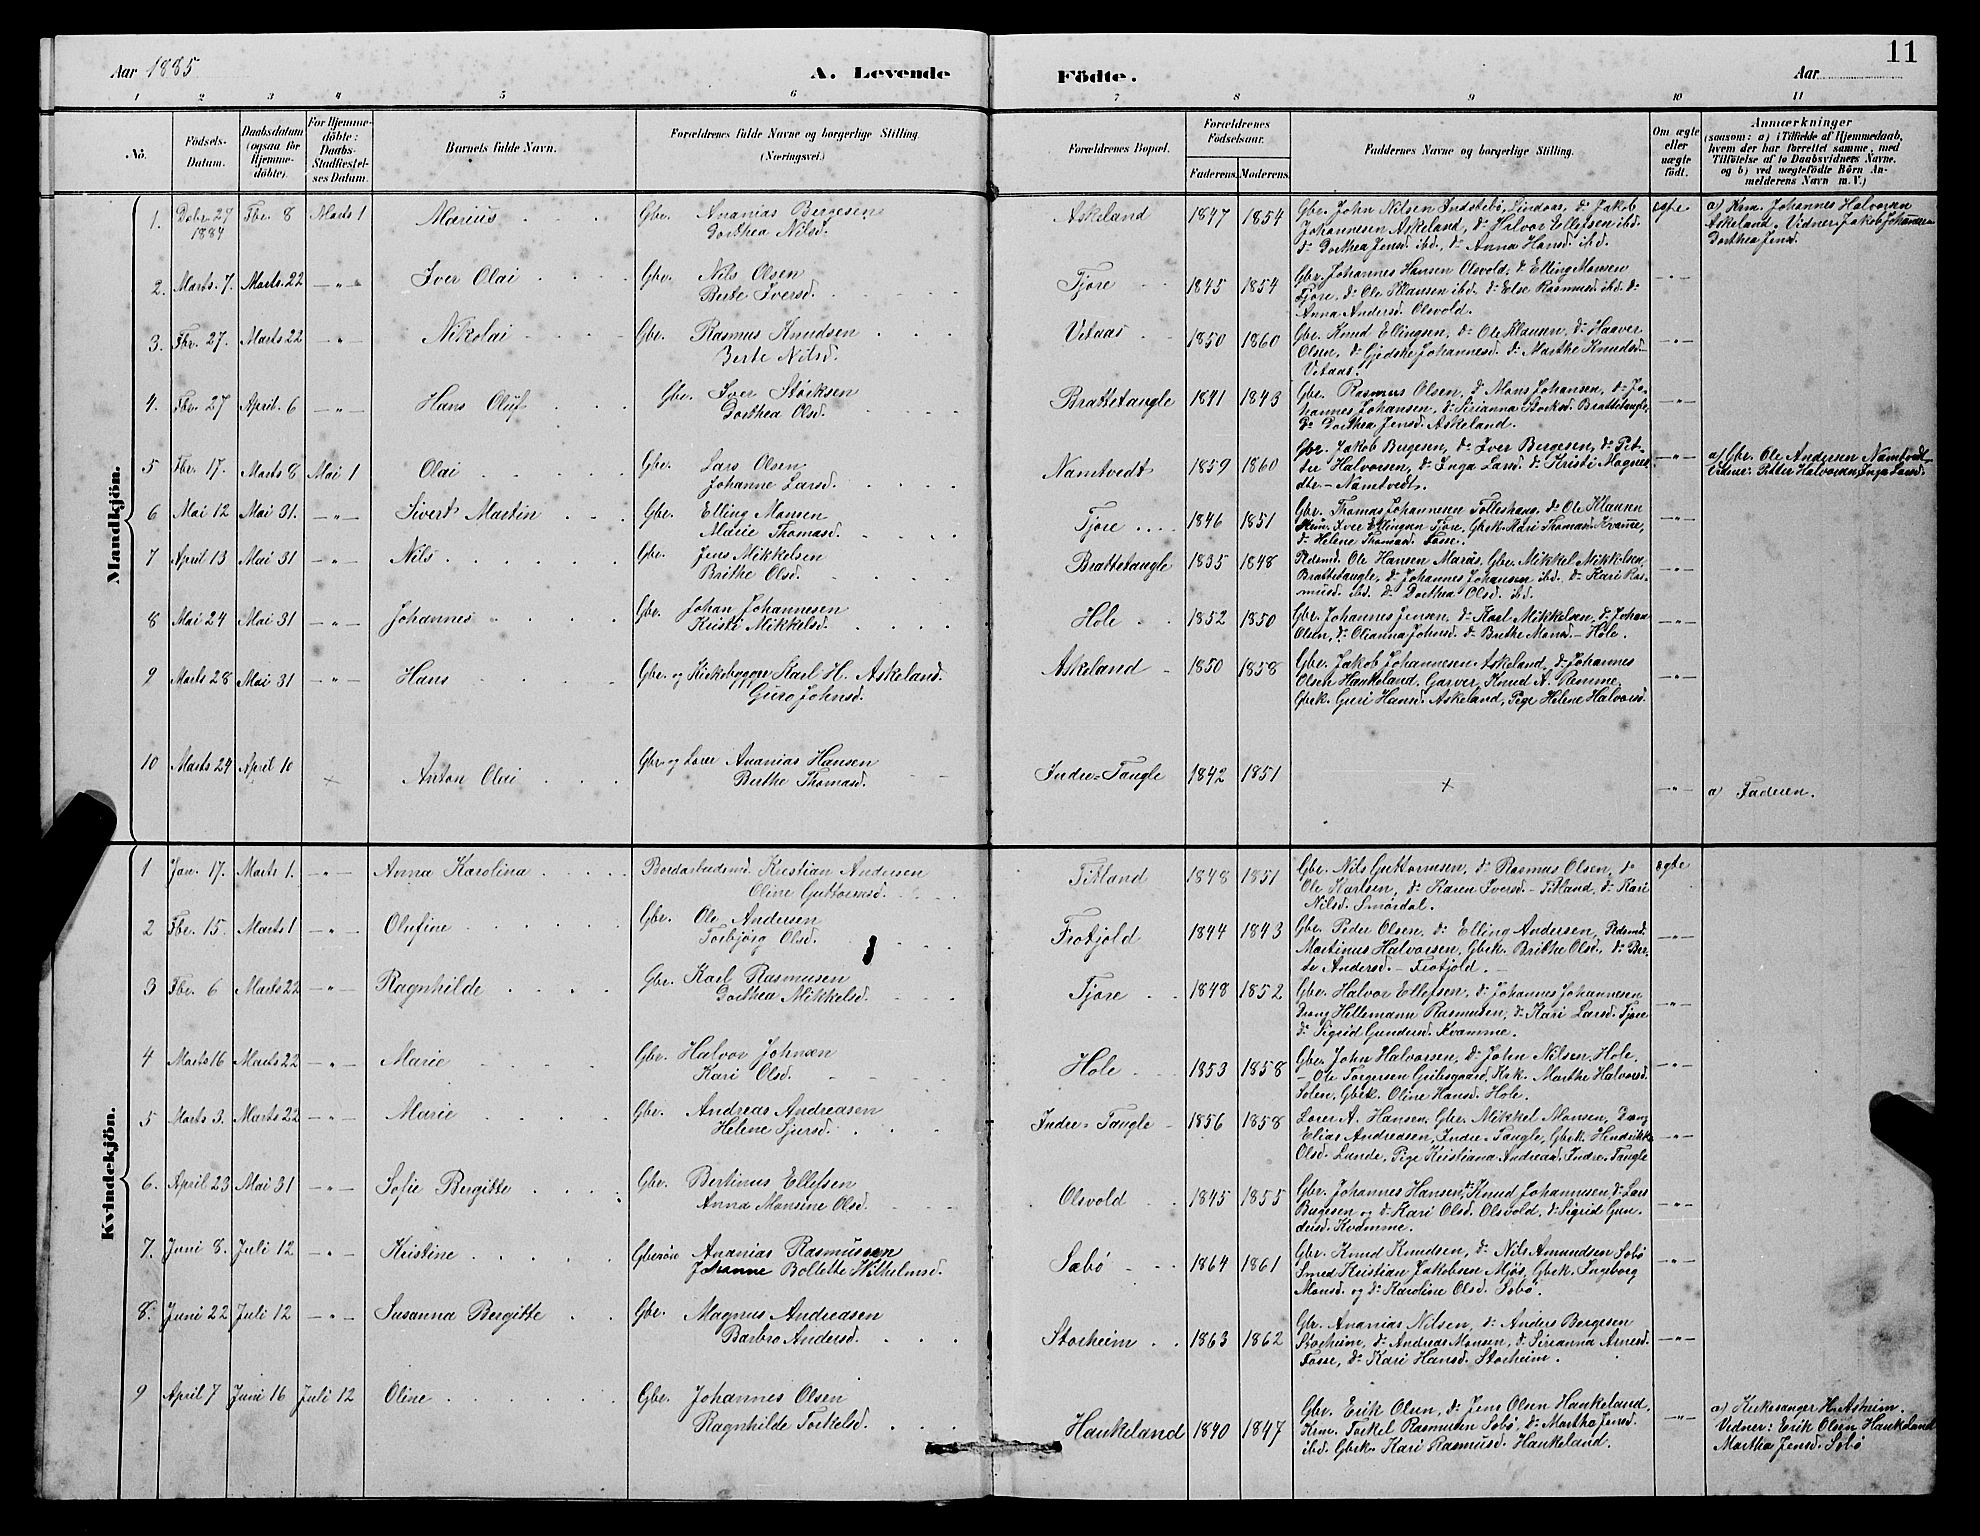 Aar 1885
A. Levende Födte.
Aar
11
1 2 3 4 5 6 7 8 9 10 11
No.
Födsels-Datum.
Daabsdatum (ogsaa for Hjemmedöbte).
For Hjemmedöbte: Daabs-Stadfæstelses Datum.
Barnets fulde Navn.
Forældrenes fulde Navne og borgerlige Stilling. (Næringsvei.)
Forældrenes Bopæl.
Forældrenes Födselsaar.
Faderens. Moderens.
Faddernes Navne og borgerlige Stilling.
Om ægte eller uægte födt.
Anmærkninger
(saasom: a) i Tilfælde af Hjemmedaab,
hvem der har forrettet samme, med
Tilföielse af to Daabsvidners Navne.
og b) ved uægtefödte Börn An-
melderens Navn m.V.)
Mandkjön.
1. Debr. 27 1884 Fbr. 8 Marts 1 Marius Gbr. Ananias Bergesen
Dorthea Nilsd. Askeland 1847 1854
Gbr. John Nilsen Indstebö, Lindaas, do Jakob
Johannesen Askeland, do Halvor Ellefsen ibd.
do Dorthea Jensd. ibd., do Anna Hansd. ibd.
ægte
a) Krm. Johannes Halvorsen
Askeland. Vidner: Jakob Johannesen
Dorthea Jensd.
2. Marts 7. Marts 22 —"— Iver Olai Gbr. Nils Olsen
Berte Iversd. Fjore 1845 1854
Gbr. Johannes Hansen Olsvold, do Elling Monsen
Fjore, do Ole Klausen ibd. do Else Rasmusd. ibd. do
Anna Andersd. Olsvold.
—"—
3. Fbr. 27. Marts 22 —"— Nikolai Gbr. Rasmus Knudsen
Berte Nilsd. Vetaas 1850 1860
Gbr. Knud Ellingsen, do Ole Klausen, do Haaver
Olsen, do Gjedske Johannesd. do Marthe Knudsd.
Vetaas.
—"—
4. Fbr. 27 April 6 —"— Hans Oluf Gbr. Iver Störksen
Dorthea Olsd. Brattetaugle 1841 1843
Gbr. Rasmus Olsen, do Mons Johansen, do Jo-
hannes Johansen, do Sirianna Storksd. Brattetaugle,
do Dorthea Jensd. Askeland.
—"—
5 Fbr. 17. Marts 8 Mai 1 Olai Gbr. Lars Olsen
Johanne Larsd. Namtvedt 1859 1860
Gbr. Jakob Bergesen, do Iver Bergesen, do Pet-
ter Halvorsen, do Inga Larsd. do Kristi Magnes-
dtr. – Namtvedt.
—"—
a) Gbr. Ole Andersen Namtvedt
Vidner: Petter Halvorsen, Inga Larsd.
6 Mai 12 Mai 31. —"— Sivert Martin Gbr. Elling Monsen
Marie Thomasd. Fjore 1846 1851
Gbr. Thomas Johannesen Tolleshaug. do Ole Klausen
Iver Ellingsen Fjore, Gbrk. Mari Thomasd. Kvamme,
do Helene Thomasd. Fosse.
—"—
7 April 13 Mai 31 —"— Nils Gbr. Jens Mikkelsen
Brithe Olsd. Brattetaugle 1835 1848
Pedsmd. Ole Hansen Maraas, Gbr. Mikkel Mikkelsen,
Brattetaugle, do Johannes Johansen ibd. do Kari Ras-
musd. ibd. do Dorthea Olsd. ibd.
—"—
8 Mai 24 Mai 31 —"— Johannes Gbr. Johan Johannesen
Kristi Mikkelsd. Hole 1852 1850
Gbr. Johannes Jensen, do Karl Mikkelsen, do Johan
Olsen, do Olianna Johnsd. do Brethe Monsd. – Hole.
—"—
9 Marts 28 Mai 31 —"— Hans Gbr. og Kirkebygger Karl H. Askeland.
Guro Johnsd. Askeland 1850 1858
Gbr. Jakob Johannesen Askeland, do Johannes
Olsen Haukeland, Garver Knud A. Remme,
Gbrk. Guri Hansd. Askeland, Pige Helene Halvorsd.
—"—
10 Marts 24 April 10 × Anton Olai Gbr. og Lærer Ananias Hansen
Berthe Thomasd. Indre-Taugle 1842 1851
×
—"—
a) Faderen.
Kvindekjön.
1 Jan. 17. Marts 1. —"— Anna Karolina Bordarbeidsmd. Kristian Andersen
Oline Guttormsd. Titland 1848 1851
Gbr. Nils Guttormsen, do Rasmus Olsen, do
Ole Karlsen, do Karen Iversd. – Titland, do Kari
Nilsd. Smördal.
ægte
2 Fbr. 15. Marts 1 —"— Olufine Gbr. Ole Andersen
Torbjörg Olsd. Frotjold 1844 1843
Gbr. Peder Olsen, do Elling Andersen, Pedsmd.
Martinus Halvorsen, Gbrk. Brithe Olsd., do Ber-
te Andersd. – Frotjold. –
—"—
3 Fbr. 6 Marts 22 —"— Ragnhilde Gbr. Karl Rasmusen
Dorthea Mikkelsd. Fjore 1848 1852
Gbr. Halvor Ellefsen, do Johannes Johannesen
Dreng Hillemann Rasmusen, do Kari Larsd. Fjore
do Sigrid Gundersd. Kvamme.
—"—
4 Marts 16 Marts 22 —"— Marie Gbr. Halvor Johnsen
Kari Olsd. Hole 1853 1858
Gbr. John Halvorsen, do John Nilsen Hole,
– Ole Torgersen Geilesgaard, Krk. Marthe Halvorsd.
Solen, Gbrk. Oline Hansd. Hole.
—"—
5 Marts 3. Marts 22 —"— Marie Gbr. Andreas Andreasen
Helene Sjursd. Indre-Taugle 1856 1858
Lærer A. Hansen, Gbr. Mikkel Monsen, Dreng
Elias Andreasen, Indre-Taugle, Gbrk. Hendrikke
Olsd. Lunde, Pige Kristiana Andreasd. Indre-Taugle
—"—
6. April 23 Mai 31 —"— Sofie Bergitte Gbr. Bertinus Ellefsen
Anna Monsine Olsd. Olsvold 1845 1855
Gbr. Johannes Hansen, do Knud Johannesen, do Lars
Bergesen og do Kari Olsd. Olsvold, do Sigrid Gun-
dersd. Kvamme.
—"—
7. Juni 8. Juli 12 —"— Kristine Ananias Rasmussen
Johanne Bollette Wilhelmsd. Sæbö 1864 1861
Gbr. Knud Knudsen, do Nils Amundsen Sæbö
Smed Kristian Jakobsen Mjös, Gbrk. Ingeborg
Monsd. og do Karoline Olsd. Sæbö.
—"—
8. Juni 22 Juli 12 —"— Susanna Bergitte Gbr. Magnus Andreasen
Barbro Andersd. Storheim 1863 1862
Gbr. Ananias Nilsen, do Anders Bergesen
Storheim, do Andreas Monsen, do Sirianna Arnesd.
Fosse, do Kari Hansd. Storheim.
—"—
9 April 7 Juni 16 Juli 12 Oline Gbr. Johannes Olsen
Ragnhilde Torkelsd. Haukeland 1840 1847
Gbr. Erik Olsen, do Jens Olsen Haukeland,
Krm. Torkel Rasmusen Sæbö, do Martha Jensd.
ibd. Gbrk. Kari Rasmusd. Haukeland.
—"—
a) Kirkesanger H. Asheim.
Vidner: Erik Olsen Haukeland
Martha Jensd. Sæbö